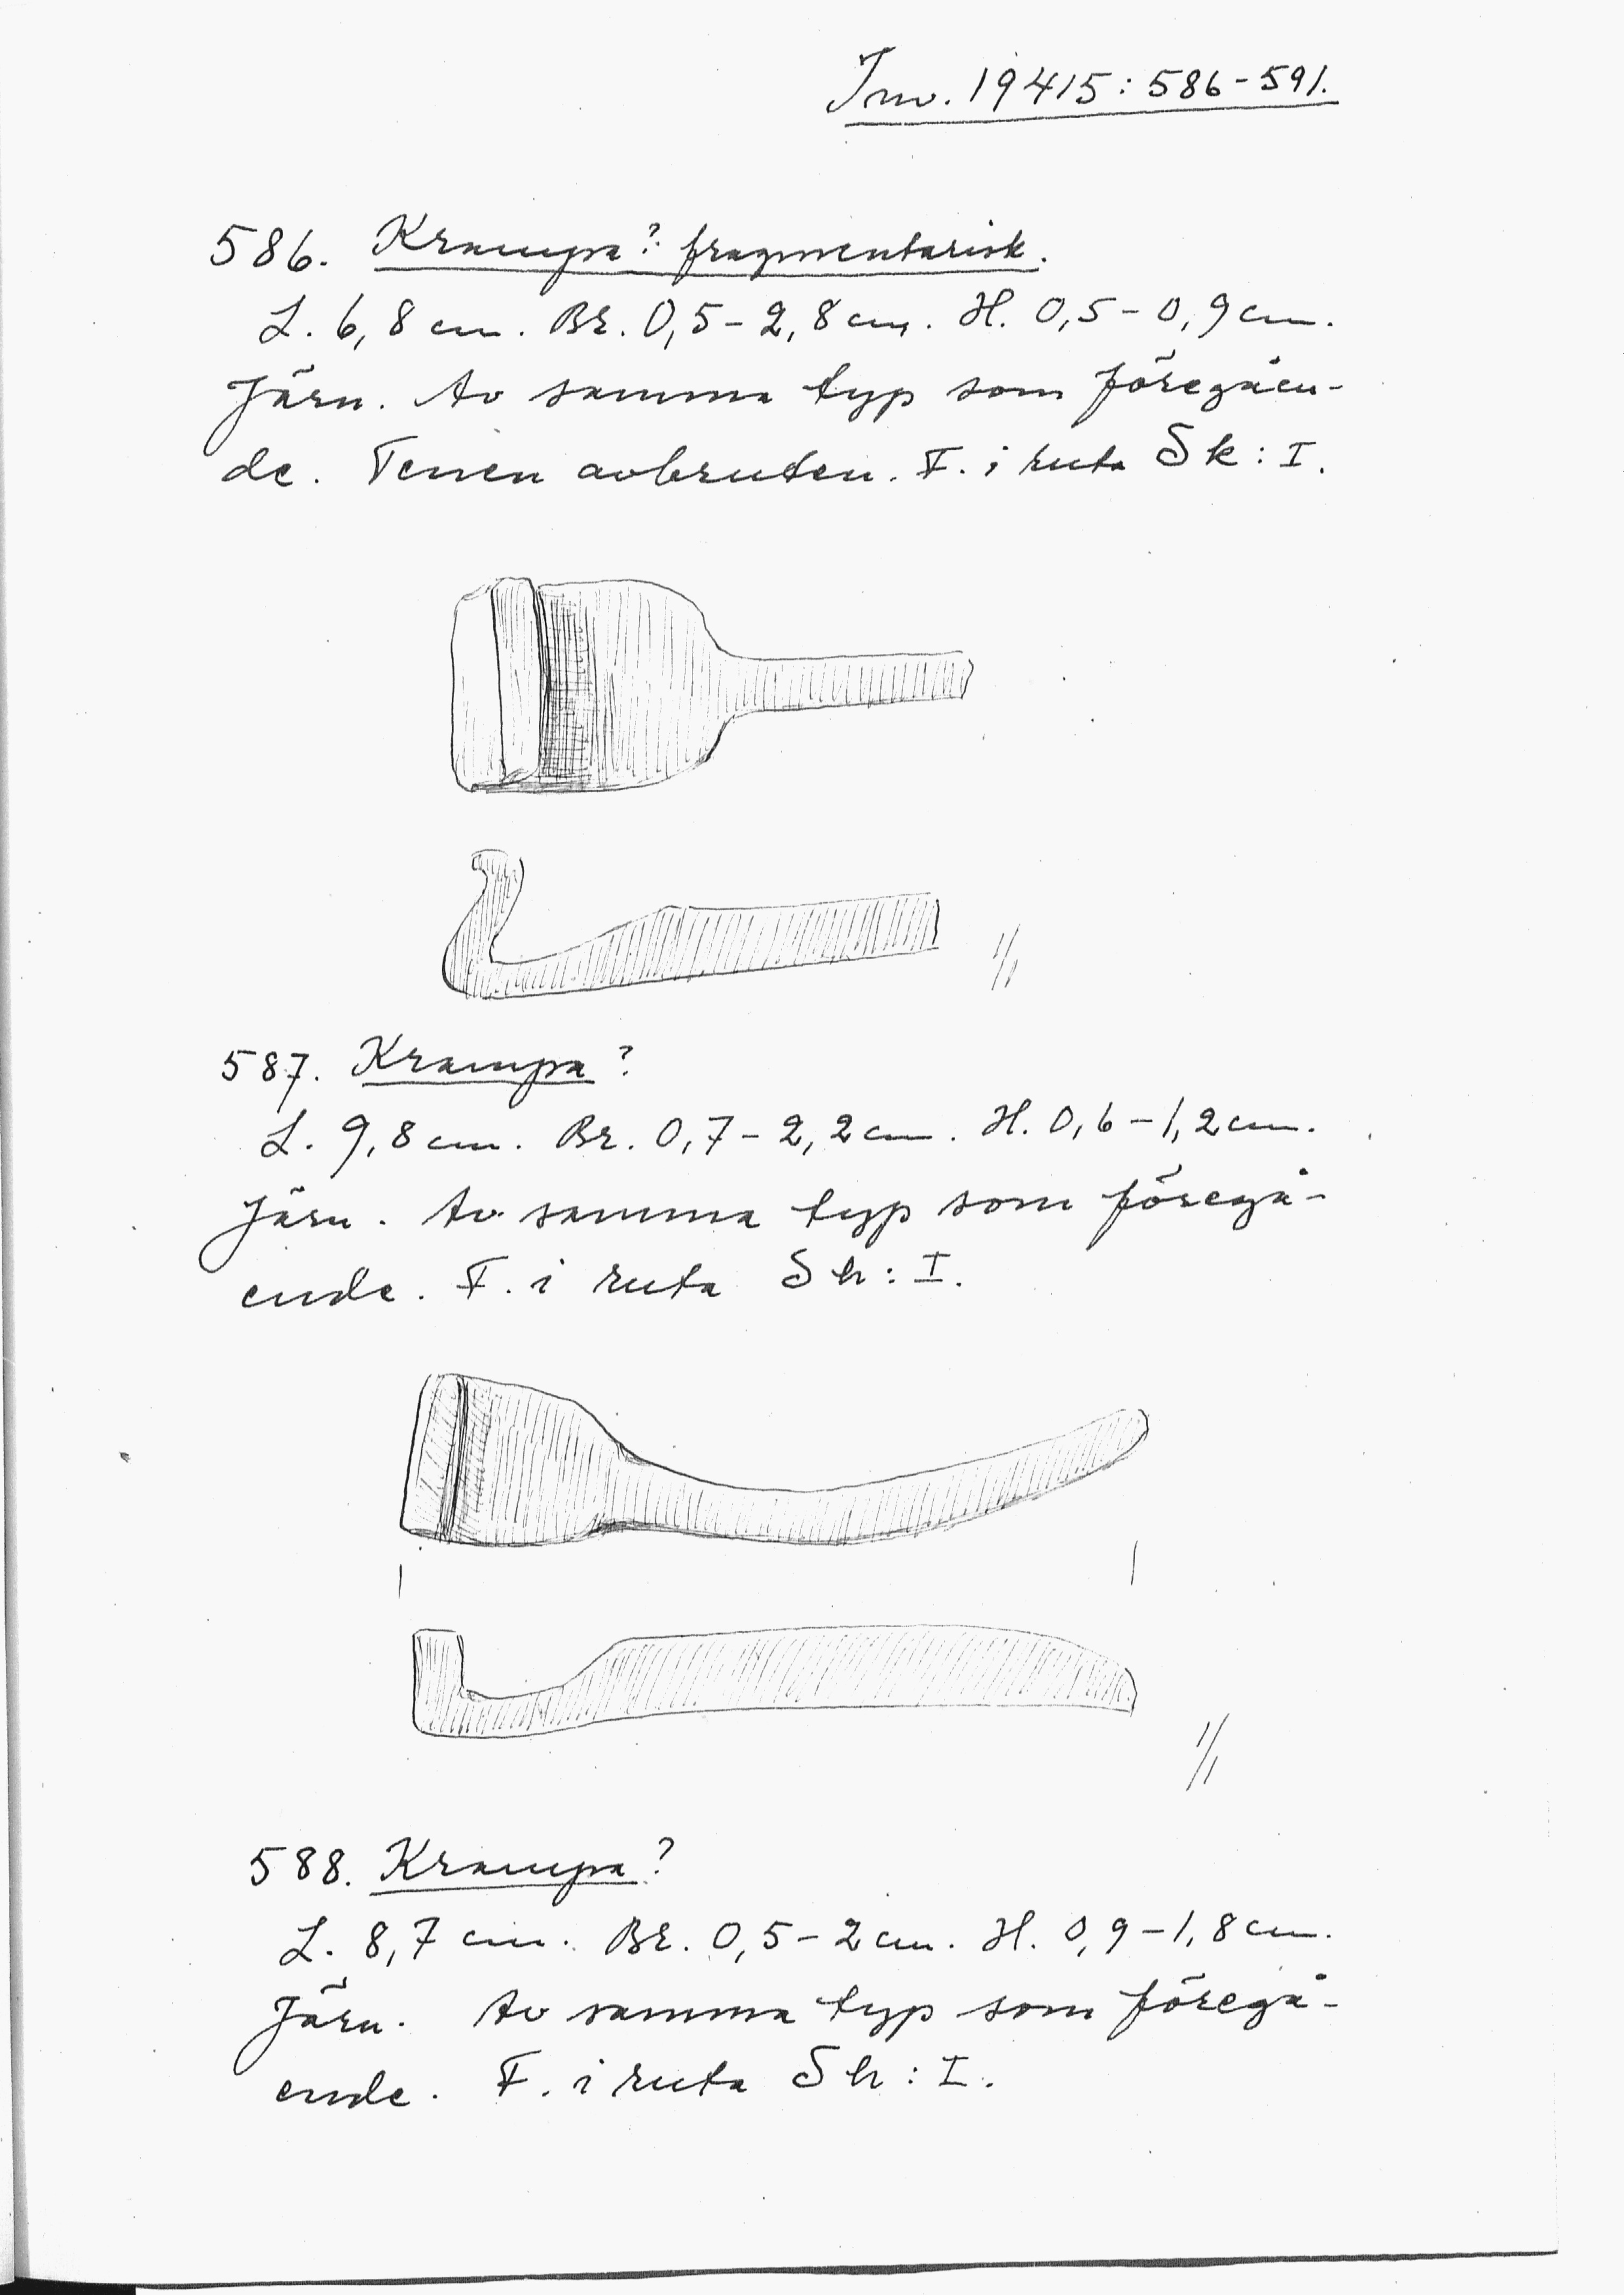 Inv. 19415: 586-591.
586. Krampa? fragmentarisk.
L. 6,8 cm. Br. 0,5-2,8 cm. H. 0,5-0,9 cm.
Järn. Av samma typ som föregåen-
de. Tenen avbruten. F. i ruta Sk: I.
1/1
587. Krampa?
L. 9,8 cm. Br. 0,7-2,2 cm. H. 0,6-1,2 cm.
Järn. Av samma typ som föregå-
ende. F. i ruta Sh: I.
1/1
588. Krampa?
L. 8,7 cm. Br. 0,5-2 cm. H. 0,9-1,8 cm.
Järn. Av samma typ som föregå-
ende. F. i ruta Sh: I.